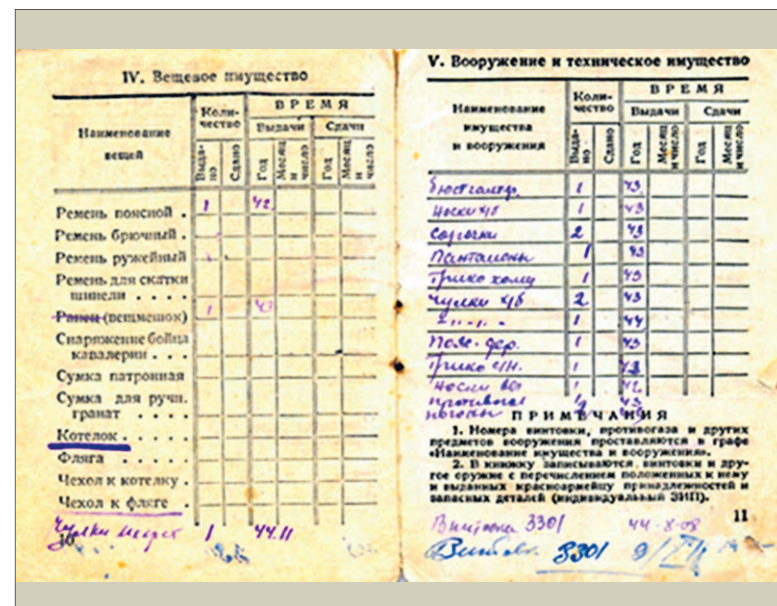 IV. Вещевое имущество
Наименование вещей
Коли-
чество
ВРЕМЯ
Выдачи
Сдачи
Выда-
но
Сдано
Год
Месяц
и число
Год
Месяц
и число
Ремень поясной . 1 42
Ремень брючный .
Ремень ружейный
Ремень для скатки
шинели . . . .
Ранец (вещмешок) 1 43
Снаряжение бойца
кавалерии . . .
Сумка патронная
Сумка для ручн.
гранат . . . .
Котелок . . . .
Фляга . . . .
Чехол к котелку .
Чехол к фляге .
Чулки шерст 1 44.11
10
V. Вооружение и техническое имущество
Наименование
имущества
и вооружения
Коли-
чество
ВРЕМЯ
Выдачи
Сдачи
Выда-
но
Сдано
Год
Месяц
и число
Год
Месяц
и число
бюстгалтер. 1 43
Носки х/б 1 43
Сорочки 2 43
Панталоны 1 43
Трико 1 43
Чулки х/б 2 43
1 44
Пояс. 1 43
Трико 1 43
Носки 1 42
противогаз 1 43
погоны 2
ПРИМЕЧАНИЯ
1. Номера винтовки, противогаза и других
предметов вооружения проставляются в графе
«Наименование имущества и вооружения».
2. В книжку записываются винтовки и дру-
гое оружие с перечислением положенных к нему
и выданных красноармейцу принадлежностей и
запасных деталей (индивидуальный ЗИП).
11
Винтовка 3301 44-8-08
Винтов. 3301